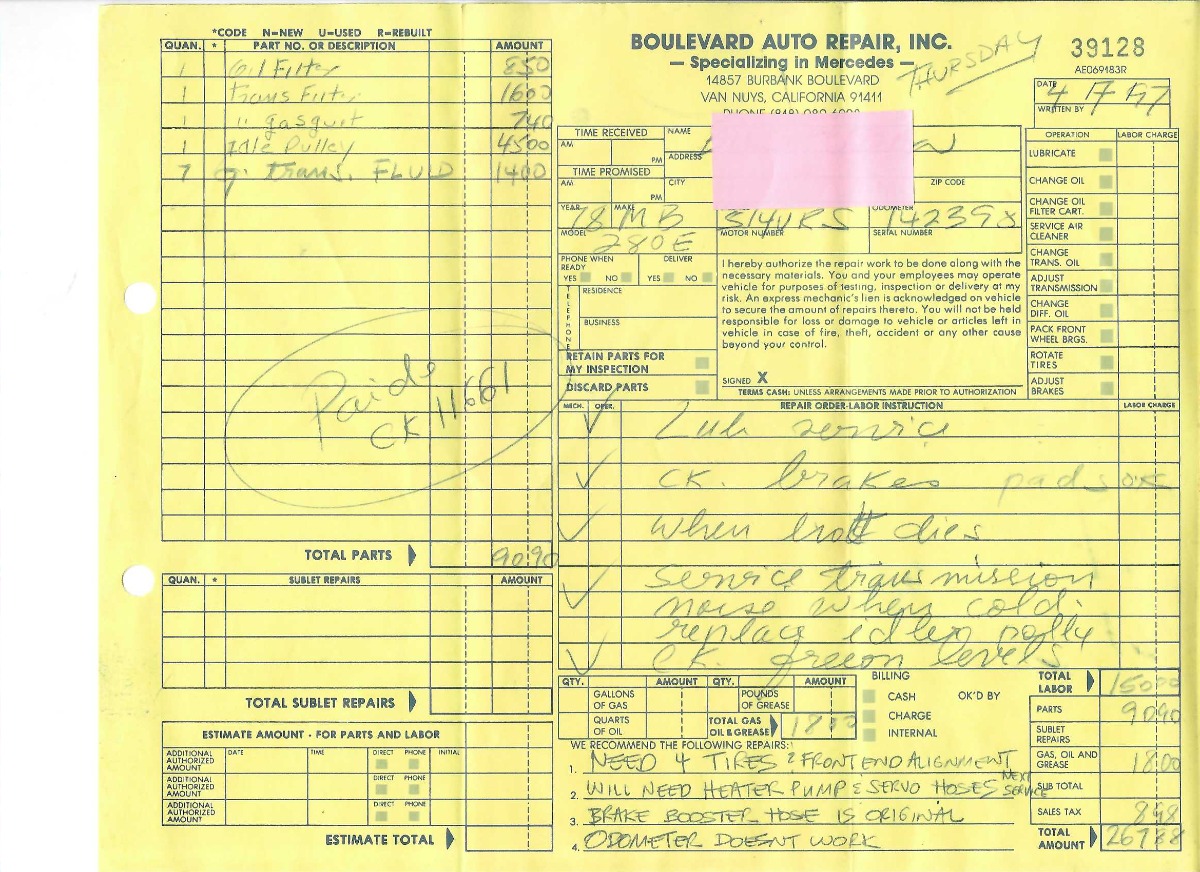 *CODE N=NEW U=USED R=REBUILT
QUAN. * PART NO. OR DESCRIPTION AMOUNT
1 Oil Filter 8 50
1 trans Filter 16 00
1 " gasguet 7 40
1 Idle Pulley 45 00
7 q. trans. FLUID 14 00
Paid
CK 11661
TOTAL PARTS 90.90
QUAN. * SUBLET REPAIRS AMOUNT
TOTAL SUBLET REPAIRS
ESTIMATE AMOUNT - FOR PARTS AND LABOR
ADDITIONAL AUTHORIZED AMOUNT DATE TIME DIRECT PHONE INITIAL
ADDITIONAL AUTHORIZED AMOUNT DIRECT PHONE
ADDITIONAL AUTHORIZED AMOUNT DIRECT PHONE
ESTIMATE TOTAL
BOULEVARD AUTO REPAIR, INC.
— Specializing in Mercedes —
14857 BURBANK BOULEVARD
VAN NUYS, CALIFORNIA 91411
THURSDAY
39128
AE069183R
DATE
WRITTEN BY
TIME RECEIVED
AM PM
TIME PROMISED
AM PM
NAME
ADDRESS
CITY ZIP CODE
YEAR 78 MAKE MB 314VRS ODOMETER 142398
MODEL 280E MOTOR NUMBER SERIAL NUMBER
PHONE WHEN READY DELIVER
YES NO YES NO
TELEPHONE
RESIDENCE
BUSINESS
RETAIN PARTS FOR
MY INSPECTION
DISCARD PARTS
I hereby authorize the repair work to be done along with the
necessary materials. You and your employees may operate
vehicle for purposes of testing, inspection or delivery at my
risk. An express mechanic's lien is acknowledged on vehicle
to secure the amount of repairs thereto. You will not be held
responsible for loss or damage to vehicle or articles left in
vehicle in case of fire, theft, accident or any other cause
beyond your control.
SIGNED X
TERMS CASH: UNLESS ARRANGEMENTS MADE PRIOR TO AUTHORIZATION
OPERATION LABOR CHARGE
LUBRICATE
CHANGE OIL
CHANGE OIL FILTER CART.
SERVICE AIR CLEANER
CHANGE TRANS. OIL
ADJUST TRANSMISSION
CHANGE DIFF. OIL
PACK FRONT WHEEL BRGS.
ROTATE TIRES
ADJUST BRAKES
MECH. OPER. REPAIR ORDER-LABOR INSTRUCTION LABOR CHARGE
Lub service
ck. brakes pads OK
when hott dies
service transmission
noise when cold.
replace idler polly
ck. freeon levels
QTY. AMOUNT QTY. AMOUNT
GALLONS OF GAS POUNDS OF GREASE
QUARTS OF OIL TOTAL GAS OIL & GREASE 18 00
BILLING
CASH OK'D BY
CHARGE
INTERNAL
WE RECOMMEND THE FOLLOWING REPAIRS:
1. NEED 4 TIRES & FRONT END ALIGNMENT
2. WILL NEED HEATER PUMP & SERVO HOSES NEXT SERVICE
3. BRAKE BOOSTER HOSE IS ORIGINAL
4. ODOMETER DOESNT WORK
TOTAL LABOR 150 00
PARTS 90 90
SUBLET REPAIRS
GAS, OIL AND GREASE 18.00
SUB TOTAL
SALES TAX 8 98
TOTAL AMOUNT 267 88